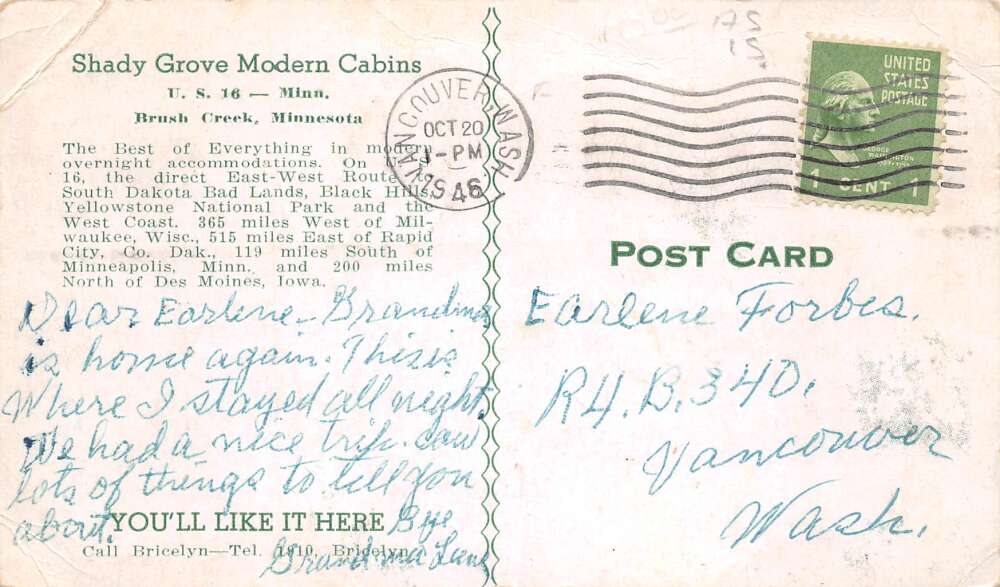 Shady Grove Modern Cabins
U. S. 16 — Minn.
Brush Creek, Minnesota
The Best of Everything in modern
overnight accommodations. On U. S.
16, the direct East-West Route to
South Dakota Bad Lands, Black Hills,
Yellowstone National Park and the
West Coast. 365 miles West of Mil-
waukee, Wisc., 515 miles East of Rapid
City, So. Dak., 119 miles South of
Minneapolis, Minn. and 200 miles
North of Des Moines, Iowa.
Dear Earlene – Grandma
is home again. This is
Where I stayed all night.
We had a nice trip. can
lots of things to tell you
about. Bye
Grandma Lane
YOU'LL LIKE IT HERE
Call Bricelyn—Tel. 1910, Bricelyn
VANCOUVER, WASH.
OCT 20
1-PM
1946
UNITED
STATES
POSTAGE
GEORGE
WASHINGTON
1789-1797
1 CENT 1
POST CARD
Earlene Forbes.
R4. B. 340.
Vancouver
Wash.